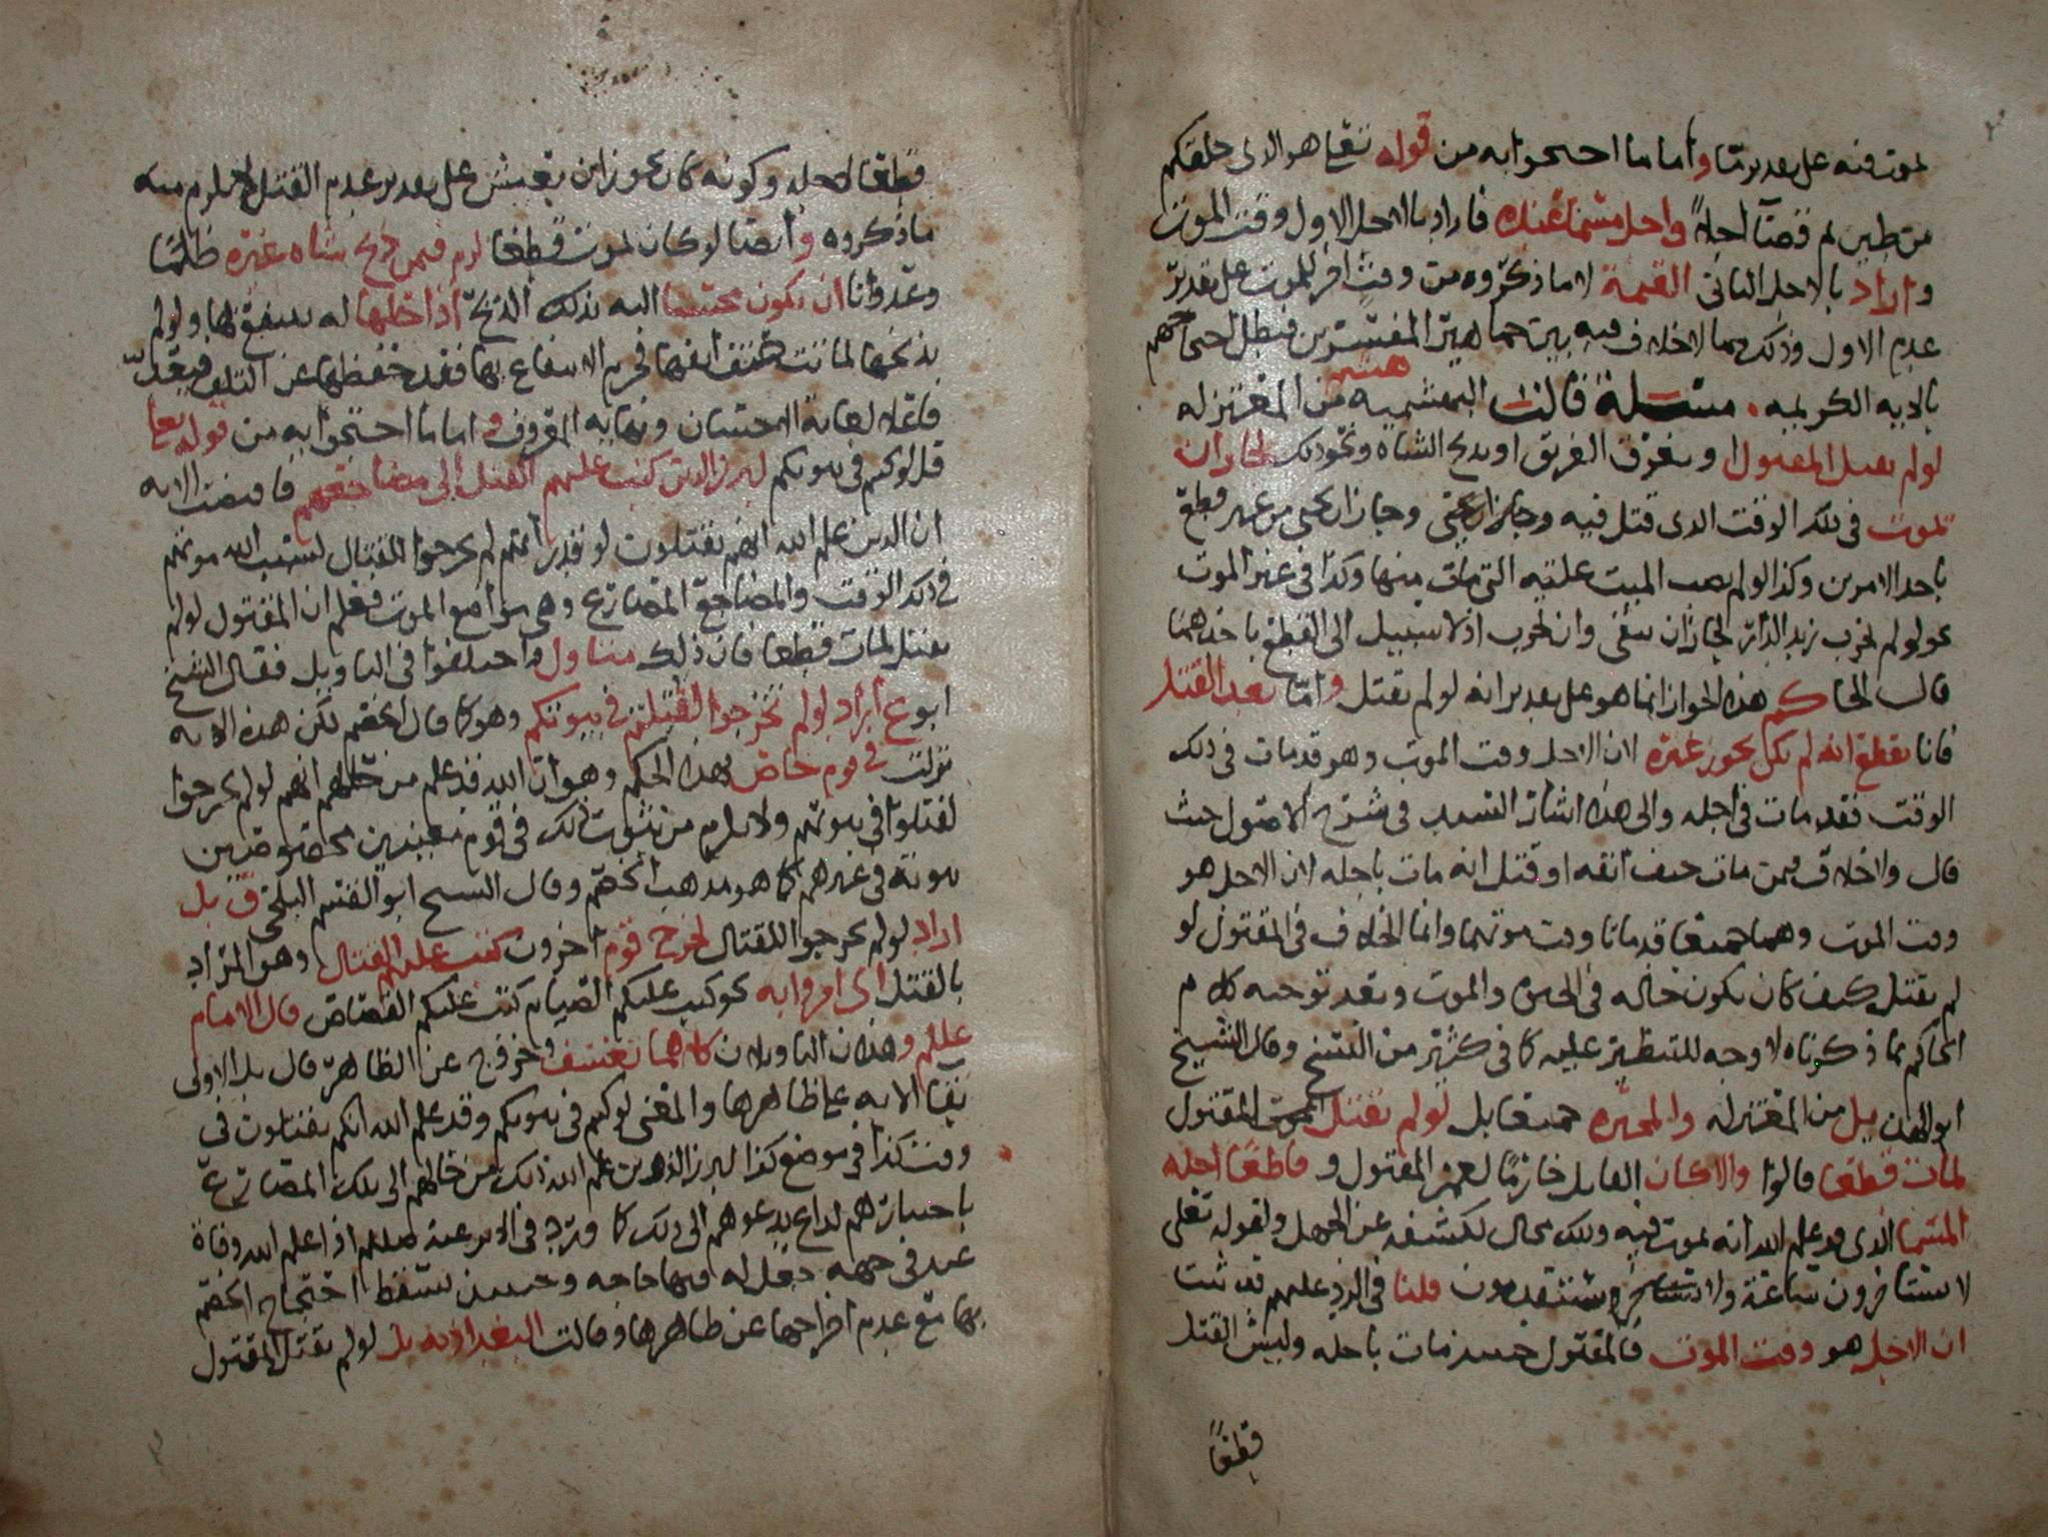 يموت فيه على تقدير ما وأما ما احتجوا به من قوله تعالى هو الذي خلقكم
من طين ثم قضى أجلا وأجل مسمى عنده فأراد بالاجل الاول وقت الموت
وأراد بالاجل الثاني القيمة لا ما ذكروه من وقت اخر للموت على تقدير
عدم الاول وذلك مما لا خلاف فيه بين جماهير المفسرين فبطل احتجاجهم
بالايه الكريمه مسئلة قالت البهشمية من المعتزله
لو لم يقتل المقتول او يغرق الغريق او يذبح الشاه ونحو ذلك لجاز ان
يموت في ذلك الوقت الذي قتل فيه وجاز ان يحيى من غير قطع
باحد الامرين وكذا لو لم يصب الميت علته التي مات منها وكذا في غير الموت
نحو لو لم يخرب زيد الدار لجاز ان تبقى وان تخرب اذ لا سبيل الى القطع باحدهما
قال الحاكم هذا الجواز انما هو على تقدير انه لو لم يقتل وأما بعد القتل
فانا نقطع انه لم يكن يجوز غيره لان الاجل وقت الموت وهو قد مات في ذلك
الوقت فقد مات في اجله والى هذا اشار السيد في شرح الاصول حيث
قال ولا خلاف فيمن مات حتف انفه او قتل انه مات باجله لان الاجل هو
وقت الموت وهما جميعا قد ماتا وقت موتهما وانما الخلاف في المقتول لو
لم يقتل كيف كان يكون حاله في الحيوة والموت وبعد توجيه كلام
الحاكم بما ذكرناه لا وجه للتنظير عليه كما في كثير من النسخ وقال الشيخ
ابو الهذيل من المعتزله والمجبره جميعا بل لو لم يقتل المقتول
لمات قطعا قالوا والا كان القاتل خارما لعمر المقتول وقاطعا اجله
المسمى الذي قد علم الله انه يموت فيه وذلك محال لكشفه عن الجهل ولقوله تعلى
لا يستأخرون ساعة ولا يستقدمون قلنا في الرد عليهم قد ثبت
ان الاجل هو وقت الموت فالمقتول حينئذ مات باجله وليس القتل
قطعا
قطعا لاجله وكونه كان يجوز ان يعيش على تقدير عدم القتل لا يلزم منه
ما ذكروه وأيضا لو كان يموت قطعا لزم فيمن ذبح شاه غيره ظلما
وعدوانا ان يكون محسنا اليه بذلك الذبح اذا خلها له ينتفع بها ولو لم
يذبحها لماتت حتف انفها فحرم الانتفاع بها فقد حفظها عن التلف فيعد
فاعله لغاية الاحسان ونهايه المعروف واما ما احتجوا به من قوله تعا
قل لو كنتم في بيوتكم لبرز الذين كتب عليهم القتل الى مضاجعهم فاقتضت الايه
ان الذين علم الله انهم يقتلون لو قدر انهم لم يخرجوا للقتال لسبب الله موتهم
في ذلك الوقت والمضاجع المصارع وهي مواضع الموت فعلم ان المقتول لو لم
يقتل لمات قطعا فان ذلك متناول واختلفوا في التاويل فقال الشيخ
ابو ع أراد لو لم تخرجوا لقتلتم في بيوتكم وهو كما قال الخصم لكن هذه الايه
نزلت في قوم خاص بهذا الحكم وهو ان الله قد علم من حالهم انهم لو لم يخرجوا
لقتلوا في بيوتهم ولا يلزم من ثبوت ذلك في قوم معينين مخصوصين
ثبوته في غيرهم كما هو مذهب الخصم وقال الشيخ ابو القسم البلخي بل
اراد لو لم يخرجوا للقتال لخرج قوم آخرون كتب عليهم القتال وهو المراد
بالقتل اي امروا به نحو كتب عليكم الصيام كتب عليكم القصاص قال الامام
عللم وهذان التاويلان كلاهما تعسف وخروج عن الظاهر قال بل الاولى
بقا الايه على ظاهرها والمعنى لو كنتم في بيوتكم وقد علم الله انكم تقتلون في
وقت كذا في موضع كذا لبرز الذين علم الله ذلك من حالهم الى تلك المصارع
باختيارهم لداع يدعوهم الى ذلك كما ورد في الاثر عنه صللم اذا علم الله وفاة
عبد في جهه جعل له فيها حاجه وحينئذ يسقط احتجاج الخصم
بها مع عدم اخراجها عن ظاهرها وقالت البغداديه بل لو لم يقتل المقتول